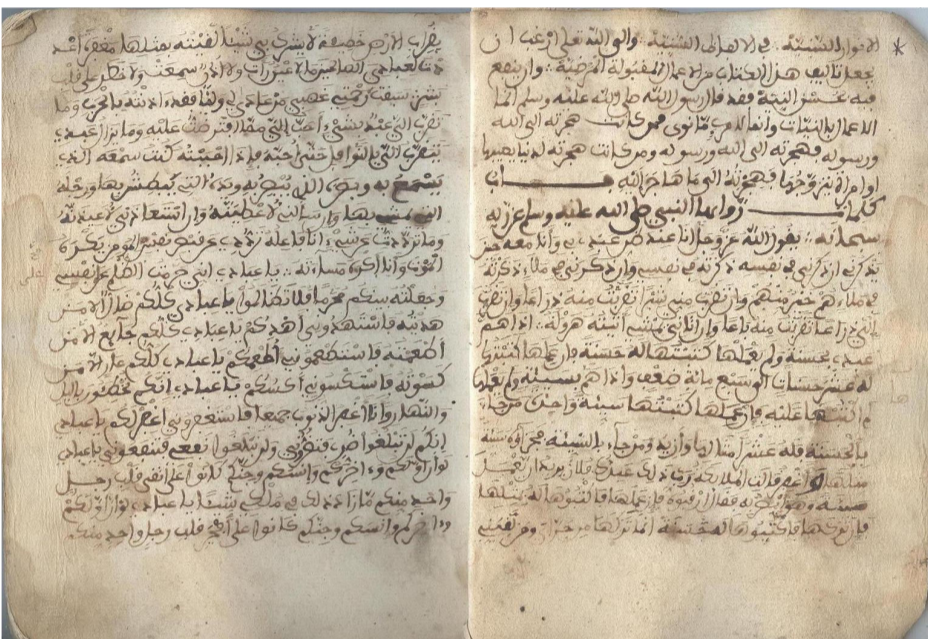 الانوار السنية في الالفاظ السنية والى الله تعلى ارغب ان
يجعل تاليف هذا الكتاب من الاعمال المقبولة المرضية وان ينفع
فيه بحسن النية فقد قال رسول الله صلى الله عليه وسلم انما
الاعمال بالنيات وانما لامرئ ما نوى فمن كانت هجرته الى الله
ورسوله فهجرته الى الله ورسوله ومن كانت هجرته لدنيا يصيبها
او امراة يتزوجها فهجرته الى ما هاجر اليه بـــاب
كلمات رواها النبي صلى الله عليه وسلم عن ربه
سبحانه يقول الله عز وجل انا عند ظن عبدي بي وانا معه حين
يذكرني ان ذكرني في نفسه ذكرته في نفسي وان ذكرني في ملاء ذكرته
في ملاء هم خير منهم وان تقرب مني شبرا تقربت منه ذراعا وان تقرب
الي ذراعا تقربت منه باعا وان اتاني يمشي اتيته هرولة اذا هم
عبدي بحسنة ولم يعملها كتبتها له حسنة فان عملها كتبتها
له عشر حسنات الى سبع مائة ضعف واذا هم بسيئة ولم يعملها
لم اكتبها عليه فان عملها كتبتها سيئة واحدة من جاء
بالحسنة فله عشر امثالها وأزيد ومن جاء بالسيئة فجزاؤه سيئة
مثلها او اغفر قالت الملائكة رب ذاك عبدك فلان يريد ان يعمل
سيئة وهو ابصر به فقال ارقبوه فإن عملها فاكتبوها له بمثلها
فإن تركها فاكتبوها له حسنة انما تركها من جراي ومن لقيني
بقراب الارض خطيئة لا يشرك بي شيئا لقيته بمثلها مغفرة أعد
دت لعبادي الصالحين ما لا عين رأت ولا اذن سمعت ولا خطر على قلب
بشر سبقت رحمتي غضبي من عادى لي وليا فقد ءاذنته بالحرب وما
تقرب الي عبد بشيء أحب الي مما افترضت عليه وما يزال عبدي
يتقرب الي بالنوافل حتى أحبه فإذا احببته كنت سمعه الذي
يسمع به وبصره الذي يبصر به ويده التي يبطش بها ورجله
التي يمشي بها وإن سألني لأعطينه وإن استعاذني لأعيذنه
وما ترددت عن شيء انا فاعله ترددي عن قبض نفس المومن يكره
الموت وانا اكره مساءته يا عبادي إني حرمت الظلم على نفسي
وجعلته بينكم محرما فلا تظالموا يا عبادي كلكم ضال إلا من
هديته فاستهدوني أهدكم يا عبادي كلكم جايع إلا من
أطعمته فاستطعموني أطعمكم يا عبادي كلكم عار إلا من
كسوته فاستكسوني أكسكم يا عبادي إنكم تخطئون بالليل
والنهار وانا اغفر الذنوب جميعا فاستغفروني اغفر لكم يا عبادي
إنكم لن تبلغوا ضري فتضروني ولن تبلغوا نفعي فتنفعوني يا عبادي
لو أن أولكم وءاخركم وإنسكم وجنكم كانوا على أتقى قلب رجل
واحد منكم ما زاد ذلك في ملكي شيئا يا عبادي لو أن أولكم
وءاخركم وانسكم وجنكم كانوا على أفجر قلب رجل واحد منكم